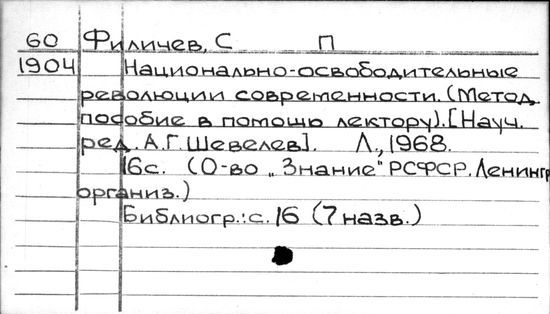 60 Филичев, С П
1904 Национально-освободительные
революции современности. (Метод.
пособие в помощь лектору). [Науч.
ред. А.Г. Шевелев]. Л., 1968.
16с. (О-во „Знание" РСФСР. Ленингр.
организ.)
Библиогр.: с. 16 (7 назв.)